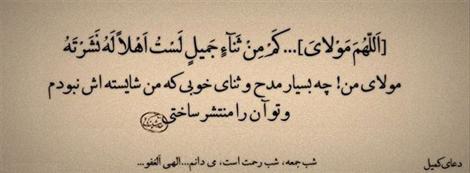 [اَللّهُمَ مَوْلایَ]...کَمْ مِنْ ثَنآءٍ جَمیلٍ لَسْتُ اَهْلاً لَهُ نَشَرْتَهُ
مولای من! چه بسیار مدح و ثنای خوبی که من شایسته اش نبودم
و تو آن را منتشر ساختی
شب جمعه، شب رحمت است، می دانم...الهی ألغفو...
دعای کمیل